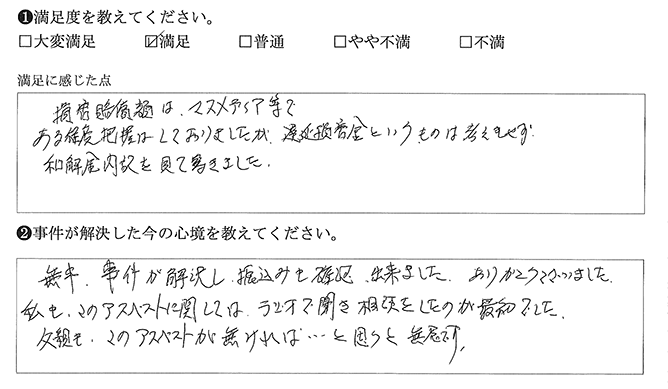 ❶満足度を教えてください。
□大変満足 ☑満足 □普通 □やや不満 □不満
満足に感じた点
損害賠償額は、マスメディア等で
ある程度把握はしてありましたが、遅延損害金というものは考えもせず
和解金内訳を見て驚きました。
❷事件が解決した今の心境を教えてください。
無事、事件が解決し、振込みも確認出来ました。ありがとうございました。
私も、このアスベストに関しては、ラジオで聞き相談をしたのが最初でした。
父親も、このアスベストが無ければ…と思うと無念です。